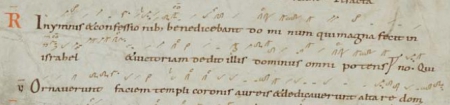 R In ymnis & confessionib; benedicebant do mi num qui magna fecit in
israhel & uictoriam dedit illis dominus omni potens no. Qui
V Ornauerunt faciem templi coronis aureis & dedicauerunt altare dom